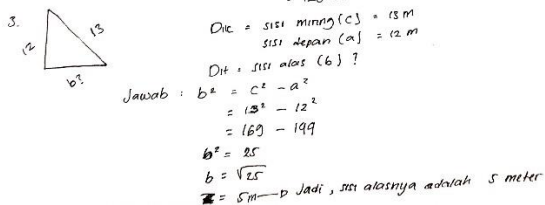 3.
12
13
b?
Dik = sisi miring (c) = 13 m
sisi depan (a) = 12 m
Dit : sisi alas (b) ?
Jawab : b² = c² - a²
= 13² - 12²
= 169 - 144
b² = 25
b = √25
= 5m Jadi, sisi alasnya adalah 5 meter